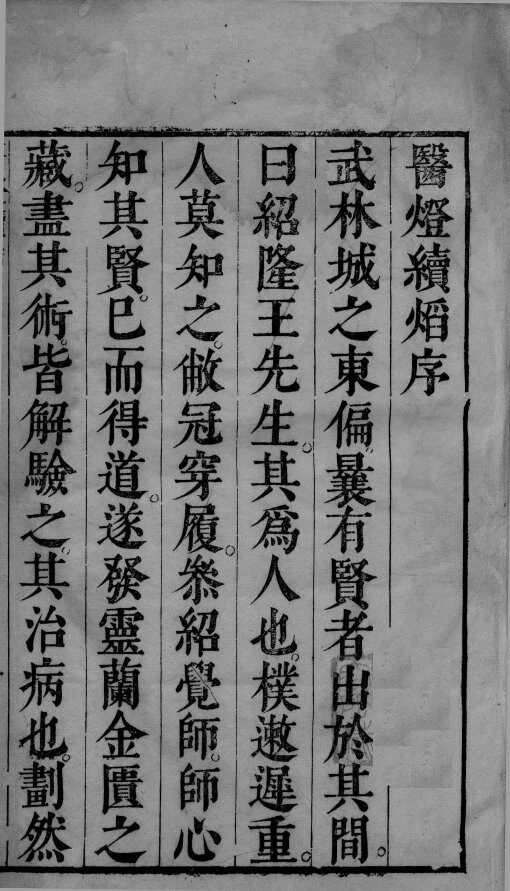 醫燈續熖序
武林城之東偏。曩有賢者出於其間。
曰紹隆王先生。其為人也。樸遬遲重。
人莫知之。敝冠穿履。叅紹覺師。師心
知其賢。已而得道。遂發靈蘭金匱之
藏。盡其術。皆解驗之。其治病也。劃然